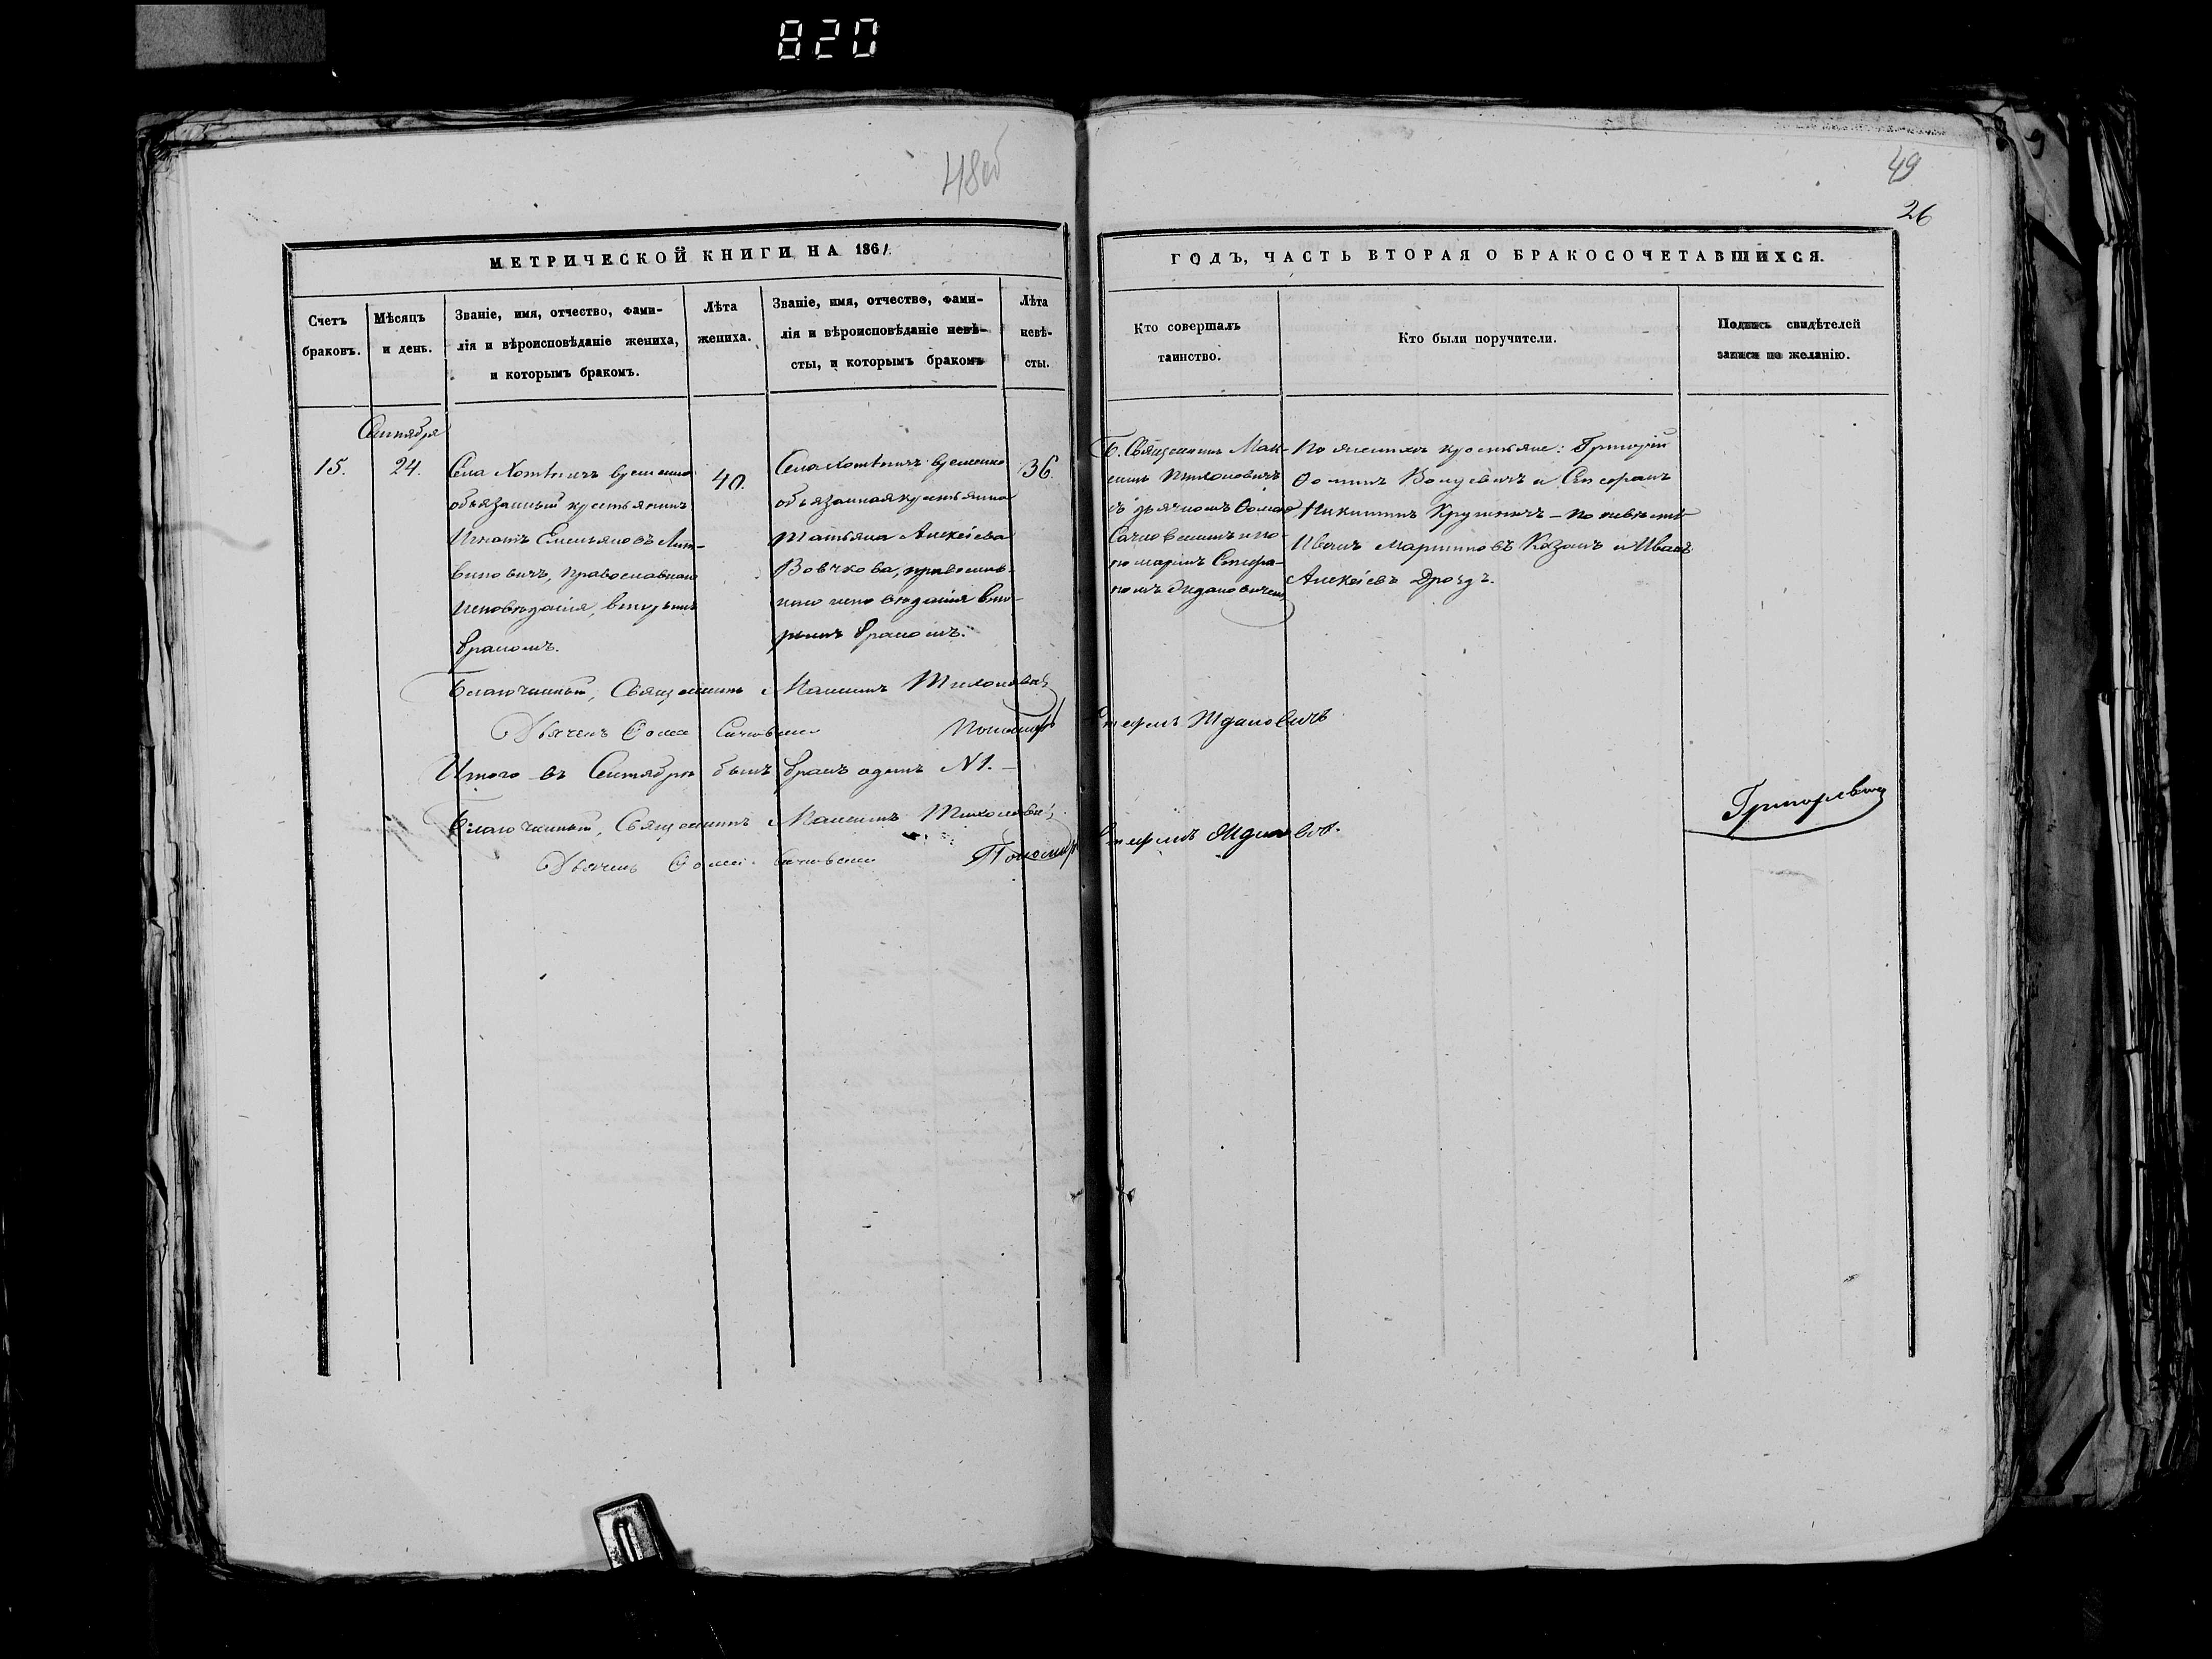 820
48об
49
26
МЕТРИЧЕСКОЙ КНИГИ НА 1861
ГОДЪ, ЧАСТЬ ВТОРАЯ О БРАКОСОЧЕТАВШИХСЯ.
Счетъ браковъ.
Мѣсяцъ и день.
Званіе, имя, отчество, фами-
лія и вѣроисповѣданіе жениха,
и которымъ бракомъ.
Лѣта
жениха.
Званіе, имя, отчество, фами-
лія и вѣроисповѣданіе невѣ-
сты, и которымъ бракомъ
Лѣта
невѣ-
сты.
Кто совершалъ
таинство.
Кто были поручители.
Подпись свидѣтелей
записи по желанію.
Сентября
15.
24.
Села Хотѣничъ временно
обязанный крестьянинъ
Игнатъ Емельяновъ Лит-
виновичъ, православнаго
исповѣданія, вторымъ
бракомъ.
40.
Села Хотѣничъ временно
обязанная крестьянка
Татьяна Алексіева
Вовчкова, православ-
наго исповѣданія вто-
рымъ бракомъ.
36.
Б. Священникъ Мак-
симъ Тихоновичъ
съ дьячкомъ Фомою
и по-
номаремъ Стефа-
номъ Ждановичемъ
По женихѣ крестьяне: Григорій
Фоминъ и Стефанъ
Никитинъ – по невѣстѣ
Иванъ Мартиновъ Казакъ и Иванъ
Алексіевъ Дроздъ.
Благочинный, Священникъ Максимъ Тихоновичъ
Дьячекъ Фома Пономарь Стефанъ Ждановичъ
Итого въ Сентябрѣ былъ бракъ одинъ N 1. –
Благочинный, Священникъ Максимъ Тихоновичъ
Дьячекъ Фома Пономарь Стефанъ Ждановичъ.
Григоровичъ